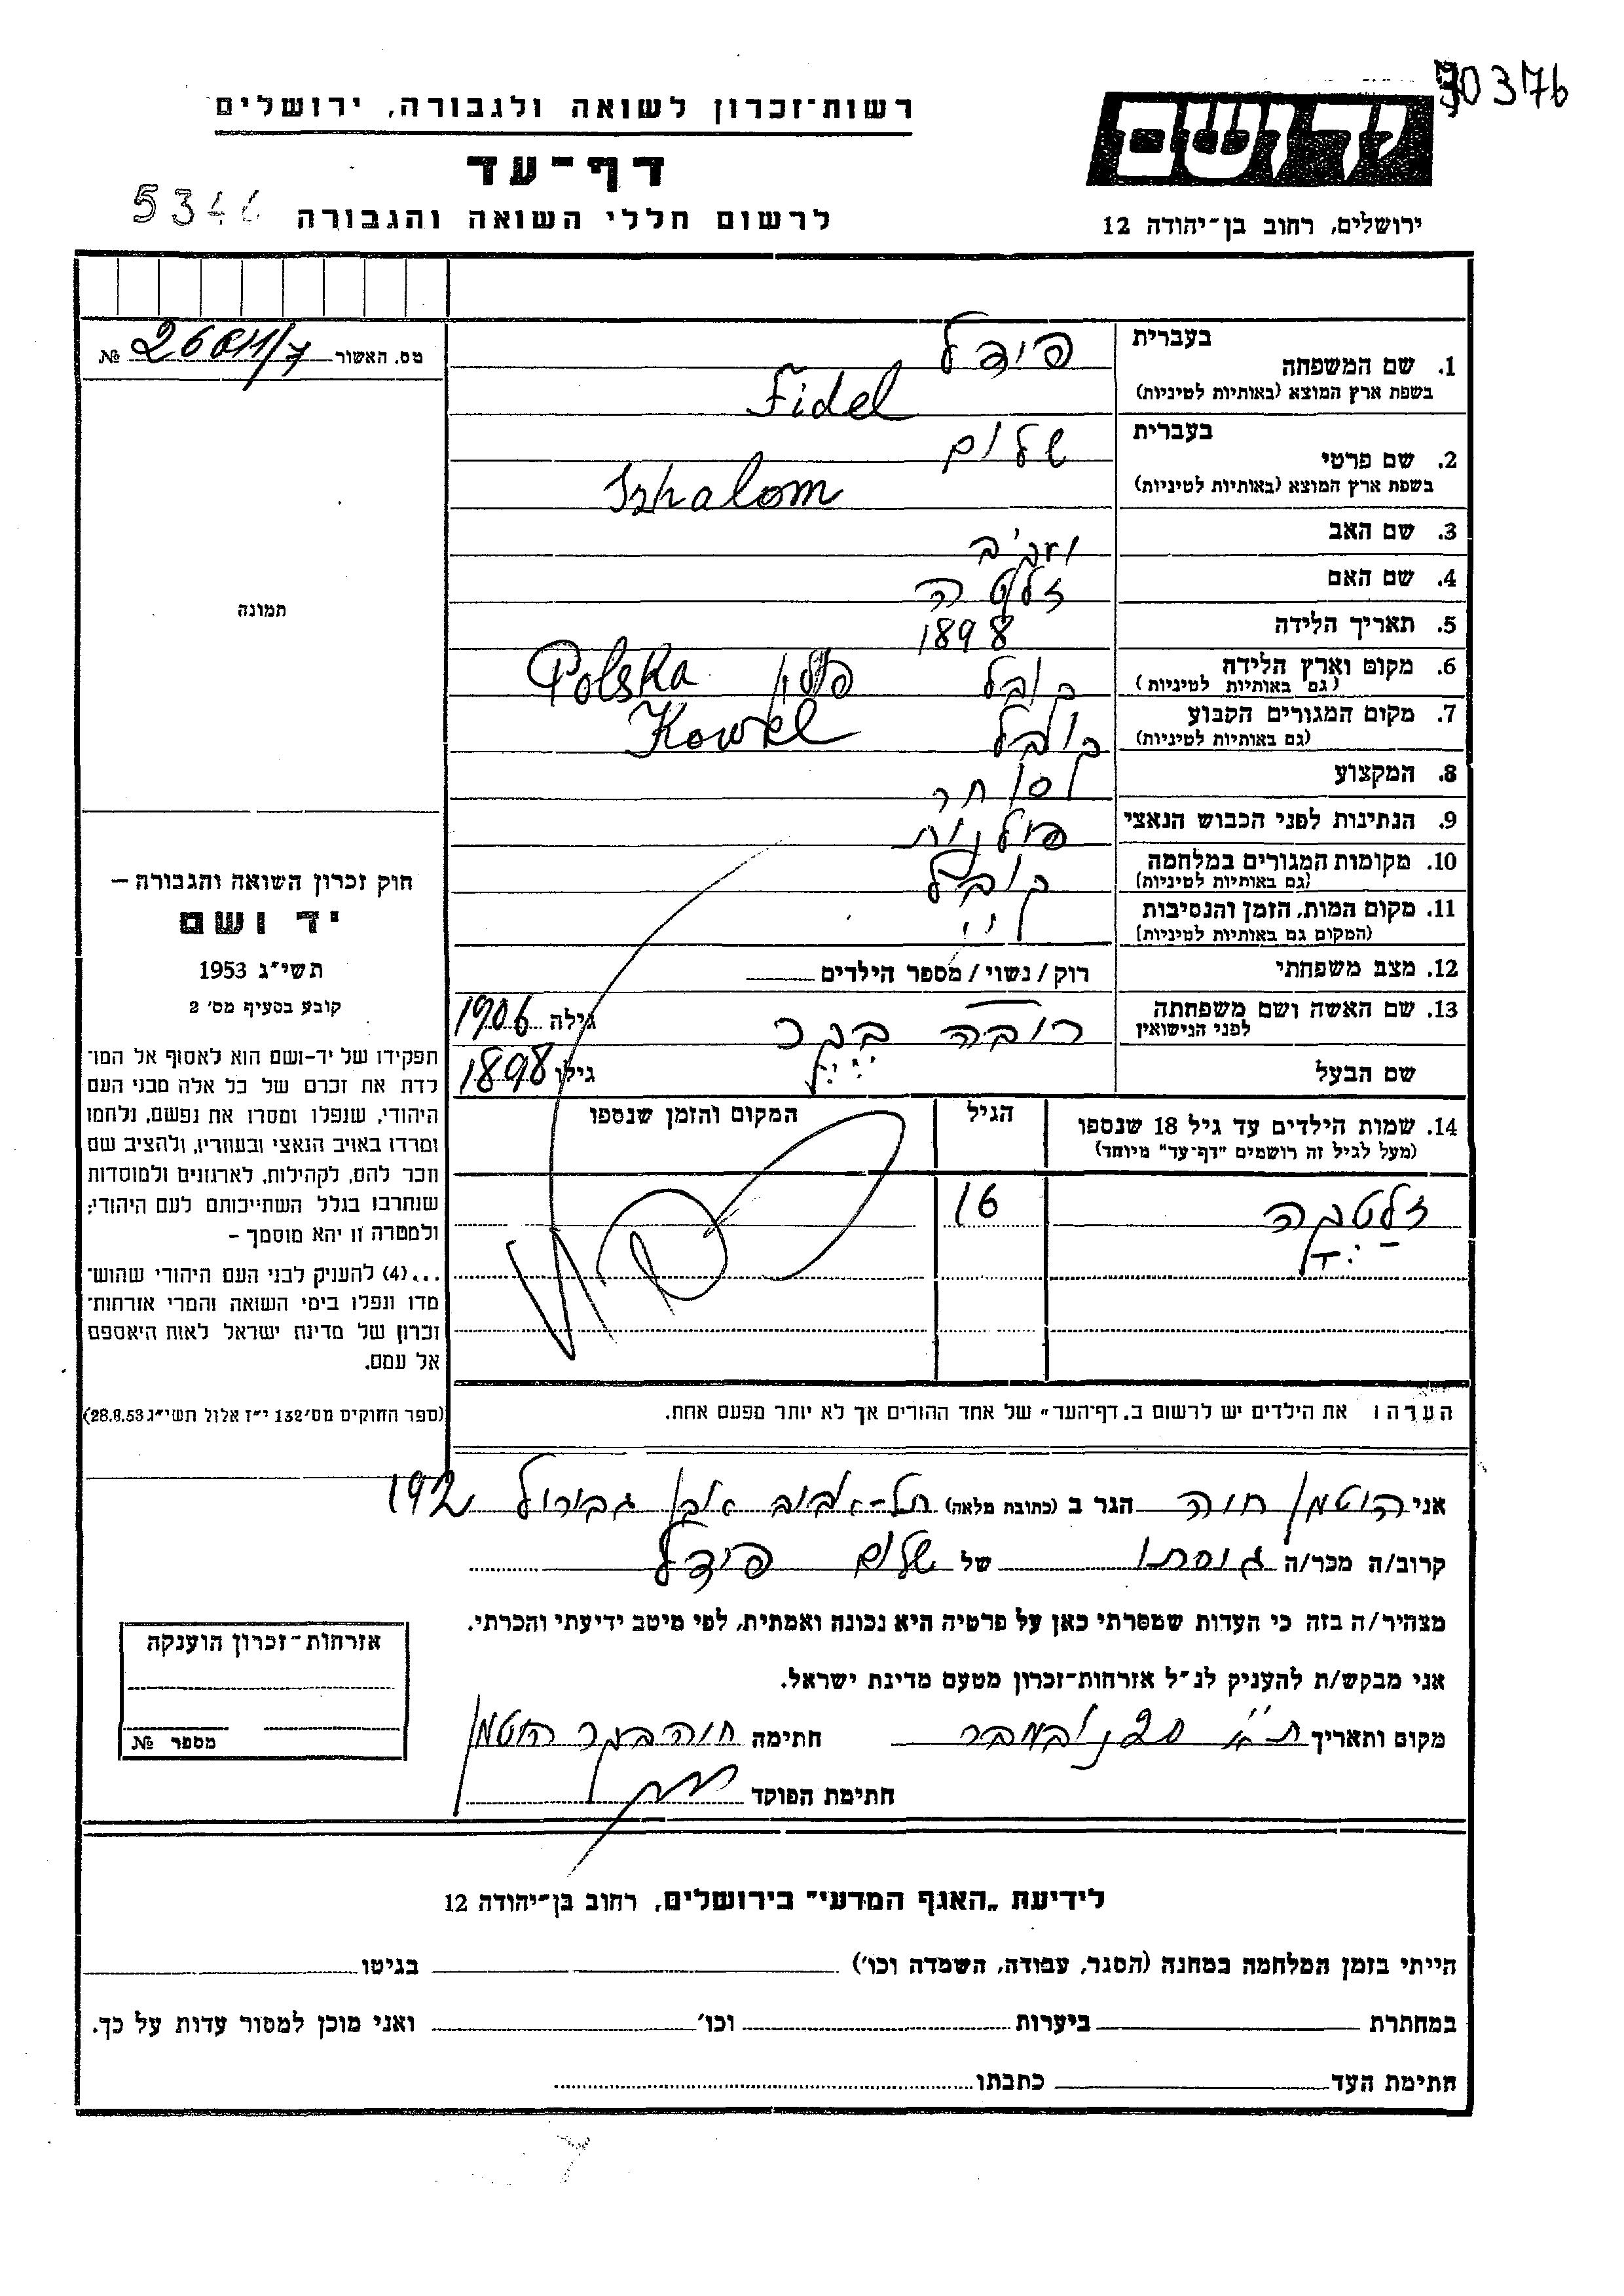 70376
יד ושם
רשות־זכרון לשואה ולגבורה, ירושלים
דף־עד
ירושלים, רחוב בן־יהודה 12
לרשום חללי השואה והגבורה
מס. האשור № 26011/7
1. שם המשפחה
בעברית
פידל
בשפת ארץ המוצא (באותיות לטיניות)
Fidel
2. שם פרטי
בעברית
שלום
בשפת ארץ המוצא (באותיות לטיניות)
Szhalom
3. שם האב
4. שם האם
זלטה
5. תאריך הלידה
1898
6. מקום וארץ הלידה
(גם באותיות לטיניות)
קובל פולין Polska
7. מקום המגורים הקבוע
(גם באותיות לטיניות)
קובל Kowel
8. המקצוע
סוחר
9. הנתינות לפני הכבוש הנאצי
פולנית
10. מקומות המגורים במלחמה
(גם באותיות לטיניות)
קובל
11. מקום המות, הזמן והנסיבות
(המקום גם באותיות לטיניות)
12. מצב משפחתי
רוק/נשוי/מספר הילדים
13. שם האשה ושם משפחתה
לפני הנישואין
גילה 1906
שם הבעל
גילו 1898
14. שמות הילדים עד גיל 18 שנספו
(מעל לגיל זה רושמים "דף־עד" מיוחד)
הגיל
המקום והזמן שנספו
זלטקה
16
תמונה
חוק זכרון השואה והגבורה –
יד ושם
תשי"ג 1953
קובע בסעיף מס' 2
תפקידו של יד-ושם הוא לאסוף אל המו־
לדת את זכרם של כל אלה מבני העם
היהודי, שנפלו ומסרו את נפשם, נלחמו
ומרדו באויב הנאצי ובעוזריו, ולהציב שם
וזכר להם, לקהילות, לארגונים ולמוסדות
שנחרבו בגלל השתייכותם לעם היהודי;
ולמטרה זו יהא מוסמך –
...(4) להעניק לבני העם היהודי שהוש־
מדו ונפלו בימי השואה והמרי אזרחות־
זכרון של מדינת ישראל לאות היאספם
אל עמם.
(ספר החוקים מס' 132 י"ז אלול תשי"ג 28.8.53)
הערה: את הילדים יש לרשום ב„דף־העד" של אחד ההורים אך לא יותר מפעם אחת.
אני הוטמן חוה הגר ב (כתובת מלאה) תל-אביב אבן גבירול 192
קרוב/ה מכר/ה גיסתו של שלום פידל
מצהיר/ה בזה כי העדות שמסרתי כאן על פרטיה היא נכונה ואמתית, לפי מיטב ידיעתי והכרתי.
אני מבקש/ת להעניק לנ"ל אזרחות־זכרון מטעם מדינת ישראל.
מקום ותאריך ת"א 20 נובמבר חתימה חוה הוטמן
חתימת הפוקד
אזרחות־זכרון הוענקה
מספר №
לידיעת „האגף המדעי" בירושלים, רחוב בן־יהודה 12
הייתי בזמן המלחמה במחנה (הסגר, עבודה, השמדה וכו') בגיטו
במחתרת ביערות וכו' ואני מוכן למסור עדות על כך.
חתימת העד כתבתו